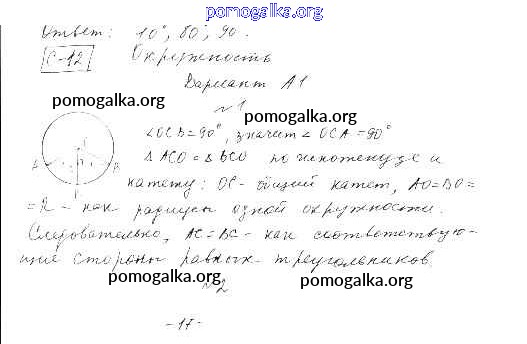 pomogalka.org
Ответ: 10°, 80°, 90.
С-12 Окружность
Вариант А1
pomogalka.org
№1
pomogalka.org
∠OCB = 90°, значит ∠OCA = 90°
△ACO = △BCO по гипотенузе и
катету: OC - общий катет, AO = BO =
= R - как радиусы одной окружности.
Следовательно, AC = BC - как соответствую-
щие стороны равных треугольников.
pomogalka.org
pomogalka.org
№2
- 17 -